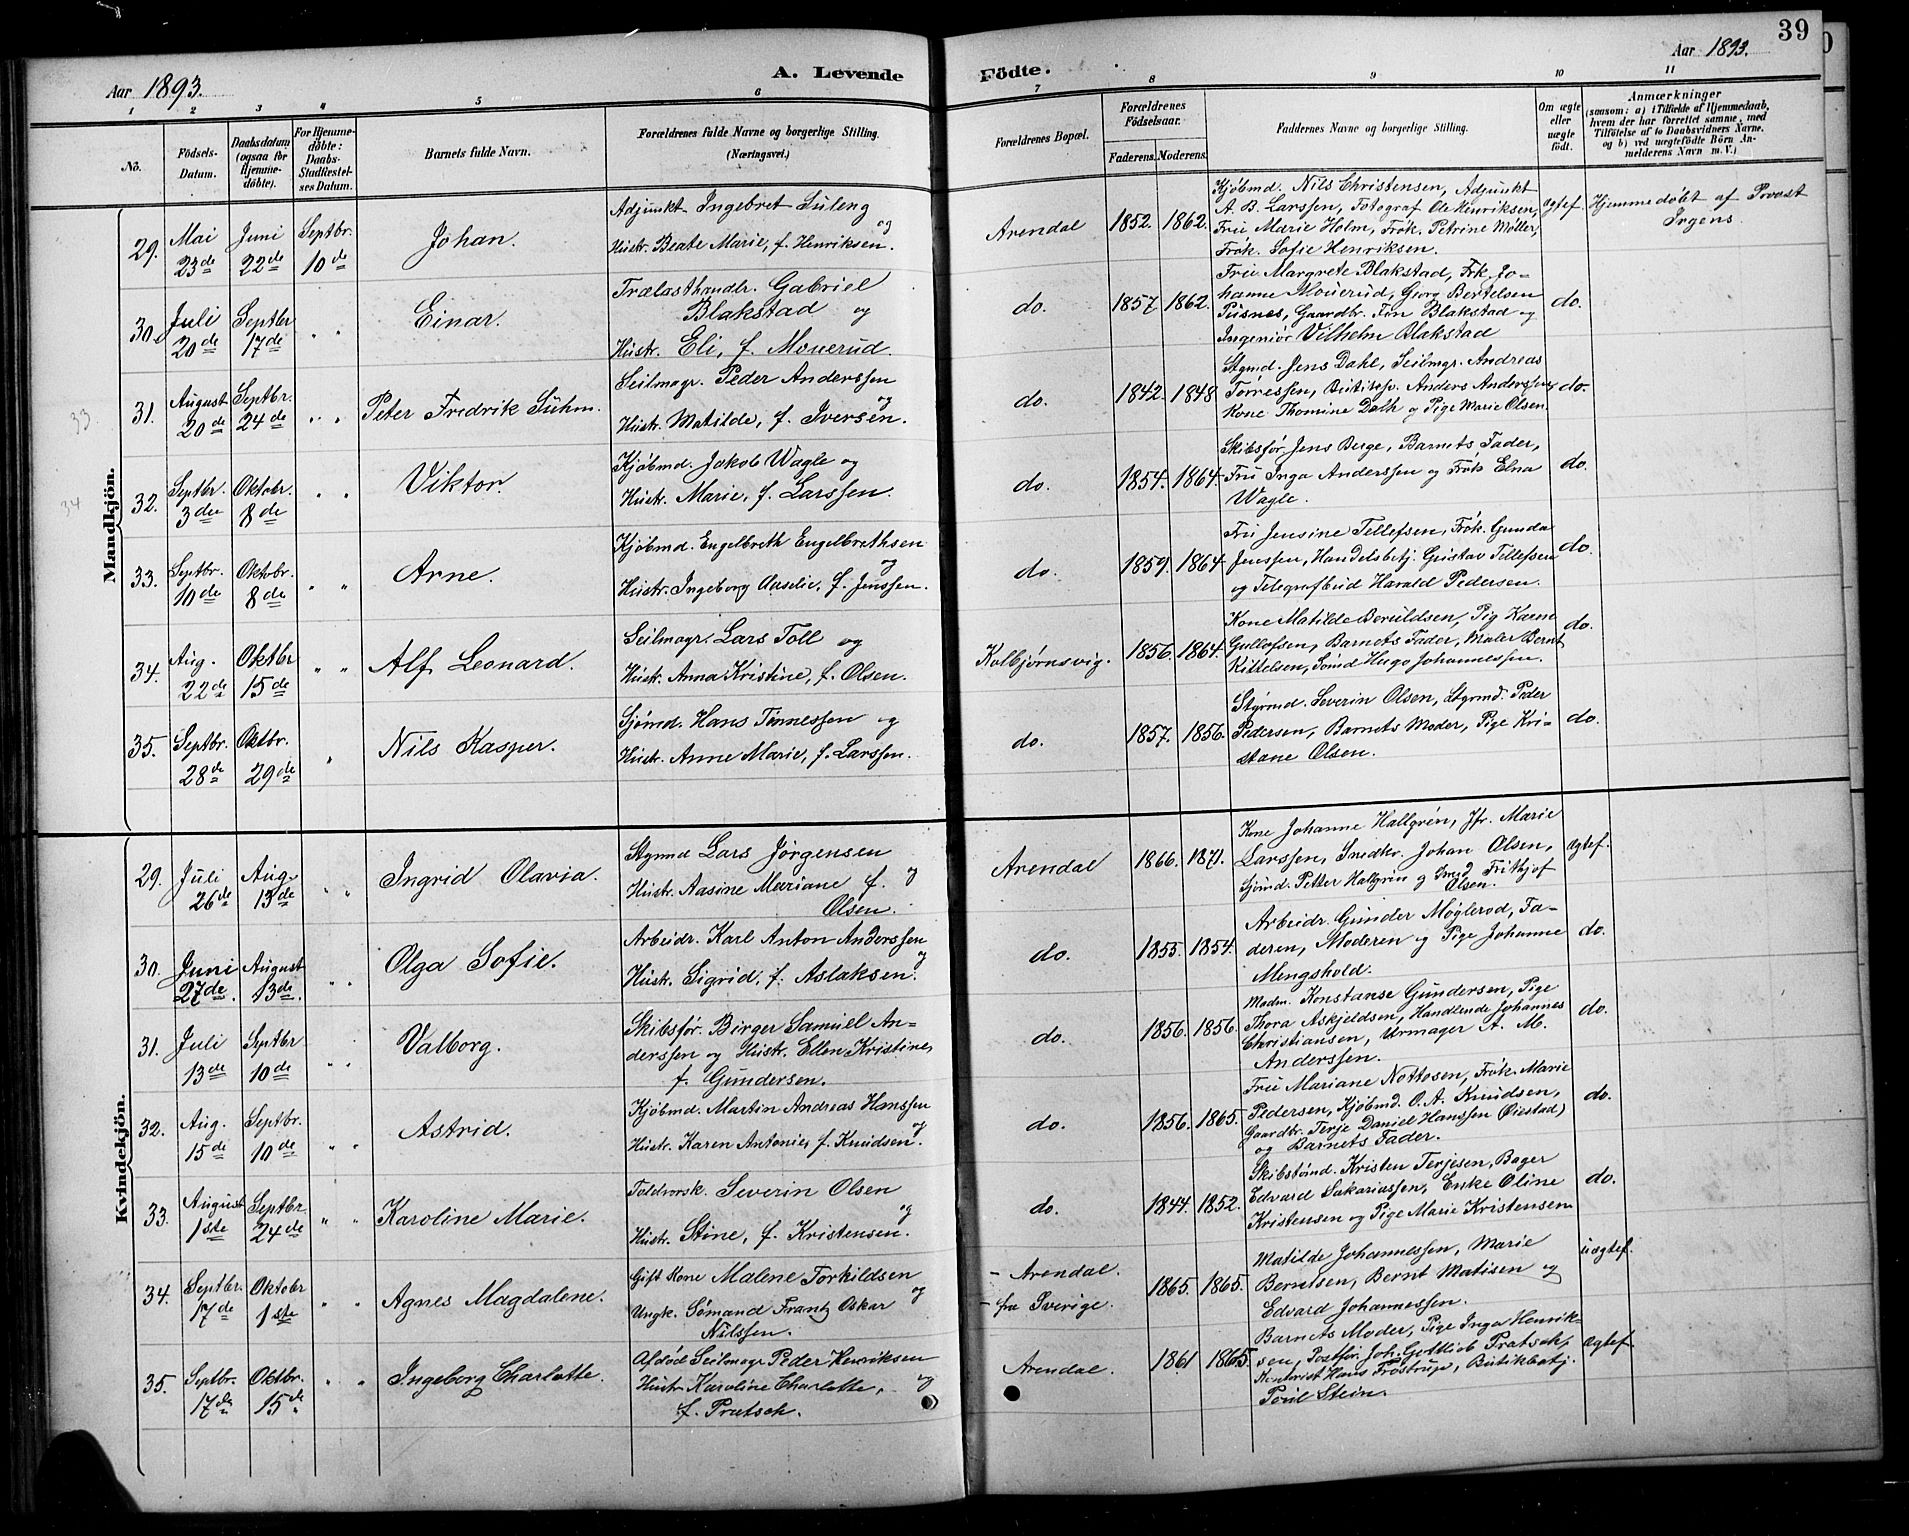 39
Aar 1893.
A. Levende
Födte.
Aar 1893.
1 2 3 4 5 6 7 8 9 10 11
No.
Födsels-
Datum.
Daabsdatum
(ogsaa for
Hjemme-
döbte).
For Hjemme-
döbte:
Daabs-
Stadfæstel-
ses Datum.
Barnets fulde Navn.
Forældrenes fulde Navne og borgerlige Stilling.
(Næringsvei.)
Forældrenes Bopæl.
Forældrenes
Födselsaar.
Faderens. Moderens.
Faddernes Navne og borgerlige Stilling.
Om ægte
eller
uægte
födt.
Anmærkninger
(saasom: a) i Tilfælde af Hjemmedaab,
hvem der har forrettet samme, med
Tilföielse af to Daabsvidners Navne.
og b) ved uægtefödte Börn An-
melderens Navn m. V.)
Mandkjön.
29. Mai 23de Juni 22de Septbr. 10de Johan.
Adjunkt Ingebret Suleng og
Hustr. Beate Marie, f. Henriksen.
Arendal 1852. 1862.
Kjøbmd. Nils Christensen, Adjunkt
A. B. Larssen, Fotograf Ole Henriksen,
Fru Marie Holm, Frøk. Petrine Møller,
Frøk. Sofie Henriksen.
Ægtef.
Hjemmedøbt af Provst
Irgens.
30. Juli 20de Septbr 17de " " Einar.
Trælasthandlr. Gabriel
Blakstad og
Hustr. Eli, f. Mouerud.
do. 1857. 1862.
Fru Margrete Blakstad, Frk. Jo-
hanne Mouerud, Georg Bertelsen
Pusnes, Gaardbr. Tøn Blakstad og
Ingeniør Vilhelm Blakstad
do.
33.
31. August 20de Septbr. 24de " " Peter Fredrik Suhm.
Seilmagr. Peder Anderssen og
Hustr. Matilde, f. Iversen.
do. 1842. 1848
Stymd. Jens Dahl, Seilmgr. Andreas
Torressen, Anders Anderssen,
Kone Thomine Dalh og Pige Marie Olsen.
do.
34
32. Septbr. 3die Oktobr. 8de " " Viktor.
Kjøbmd. Jakob Wagle og
Hustr. Marie, f. Larssen.
do. 1854. 1864.
Skibsfør Jens Berge, Barnets Fader,
Fru Inga Anderssen og Frøk Elna
Wagle.
do.
33. Septbr. 10de Oktobr. 8de " " Arne.
Kjøbmd. Engelbreth Engelbrethsen og
Hustr. Ingeborg Aaselie, f. Jenssen.
do. 1859. 1864
Fru Jensine Tellefsen, Frøk. Gunda
Jenssen, Handelsbetj. Gustav Tellefsen
og Telegrafbud Harald Pedersen.
do.
34. Aug. 22de Oktbr 15de " " Alf Leonard.
Seilmagr. Lars Toll og
Hustr. Anna Kristine, f. Olsen.
Kolbjørnsvig. 1856. 1864.
Kone Matilde Beruldsen, Pig Karne
Gullofsen, Barnets Fader, Maler Bernt
Kittelsen, Sømd Hugo Johannessen.
do.
35. Septbr. 28de Oktbr. 29de " Nils Kasper.
Sjømd. Hans Tønnessen og
Hustr. Anne Marie, f. Larssen.
do. 1857. 1856.
Styrmd. Severin Olsen, Styrmd. Peder
Pedersen, Barnets Moder, Pige Kri-
stane Olsen.
do.
Kvindekjön.
29. Juli 26de Aug. 13de " " Ingrid Olavia.
Stymd Lars Jørgensen og
Hustr. Aasine Mariane f.
Olsen.
Arendal 1866. 1871.
Kone Johanne Hallgrén, Jfr. Marie
Larssen, Snedkr. Johan Olsen,
Sjømd. Petter Hallgrin og Frithjof
Olsen.
Ægtef.
30. Juni 27de. August 13de. " " Olga Sofie.
Arbeidr. Karl Anton Anderssen og
Hustr. Sigrid, f. Aslaksen.
do. 1855. 1854.
Arbeidr. Gunder Møglerod, Fa-
deren, Moderen og Pige Johanne
Mengshold.
do.
31. Juli 13de Septbr 10de " " Valborg.
Skibsfør. Birger Samuel An-
derssen og Hustr. Ellen Kristine,
f. Gundersen.
do. 1856. 1856.
Madm. Konstanse Gundersen, Pige
Thora Askjeldsen, Handlende Johannes
Christiansen, Urmager A. M.
Anderssen.
do.
32. Aug. 15de Septbr. 10de " " Astrid.
Kjøbmd. Martin Andreas Hanssen og
Hustr. Karen Antonie, f. Knudsen.
do. 1856. 1865.
Fru Mariane Nottosen, Frøk. Marie
Pedersen, Kjøbmd. O. A. Knudsen,
Gaardbr. Terje Daniel Hanssen (Øiestad)
og Barnets Fader.
do.
33. August 1ste Septbr. 24de " " Karoline Marie.
Toldvorsk. Severin Olsen og
Hustr. Stine, f. Kristensen.
do. 1844. 1852.
Skibstømd. Kristen Terjesen, Bager
Edvard Sakariassen, Enke Oline
Kristensen og Pige Marie Kristensen
do.
34. Septbr. 17de Oktober 1ste " " Agnes Magdalene.
Gift Kone Malene Torkildsen og
Ungk. Sømand Frantz Oskar
Nilssen.
- Arendal.
- fra Sverige.
1865. 1865.
Matilde Johannessen, Marie
Berntsen, Bernt Matisen og
Edvard Johannessen.
uægtef.
35. Septbr. 17de Oktbr. 15de " " Ingeborg Charlotte.
Afdød Seilmagr Peder Henriksen og
Hustr Karoline Charlotte,
f. Pratsch.
Arendal. 1861 1865.
Barnets Moder, Pige Inga Henrik-
sen, Postfør. Joh. Gottlieb Pratsch,
Hans Frøstrup, Butikbetj.
Poul Stein.
Ægtef.